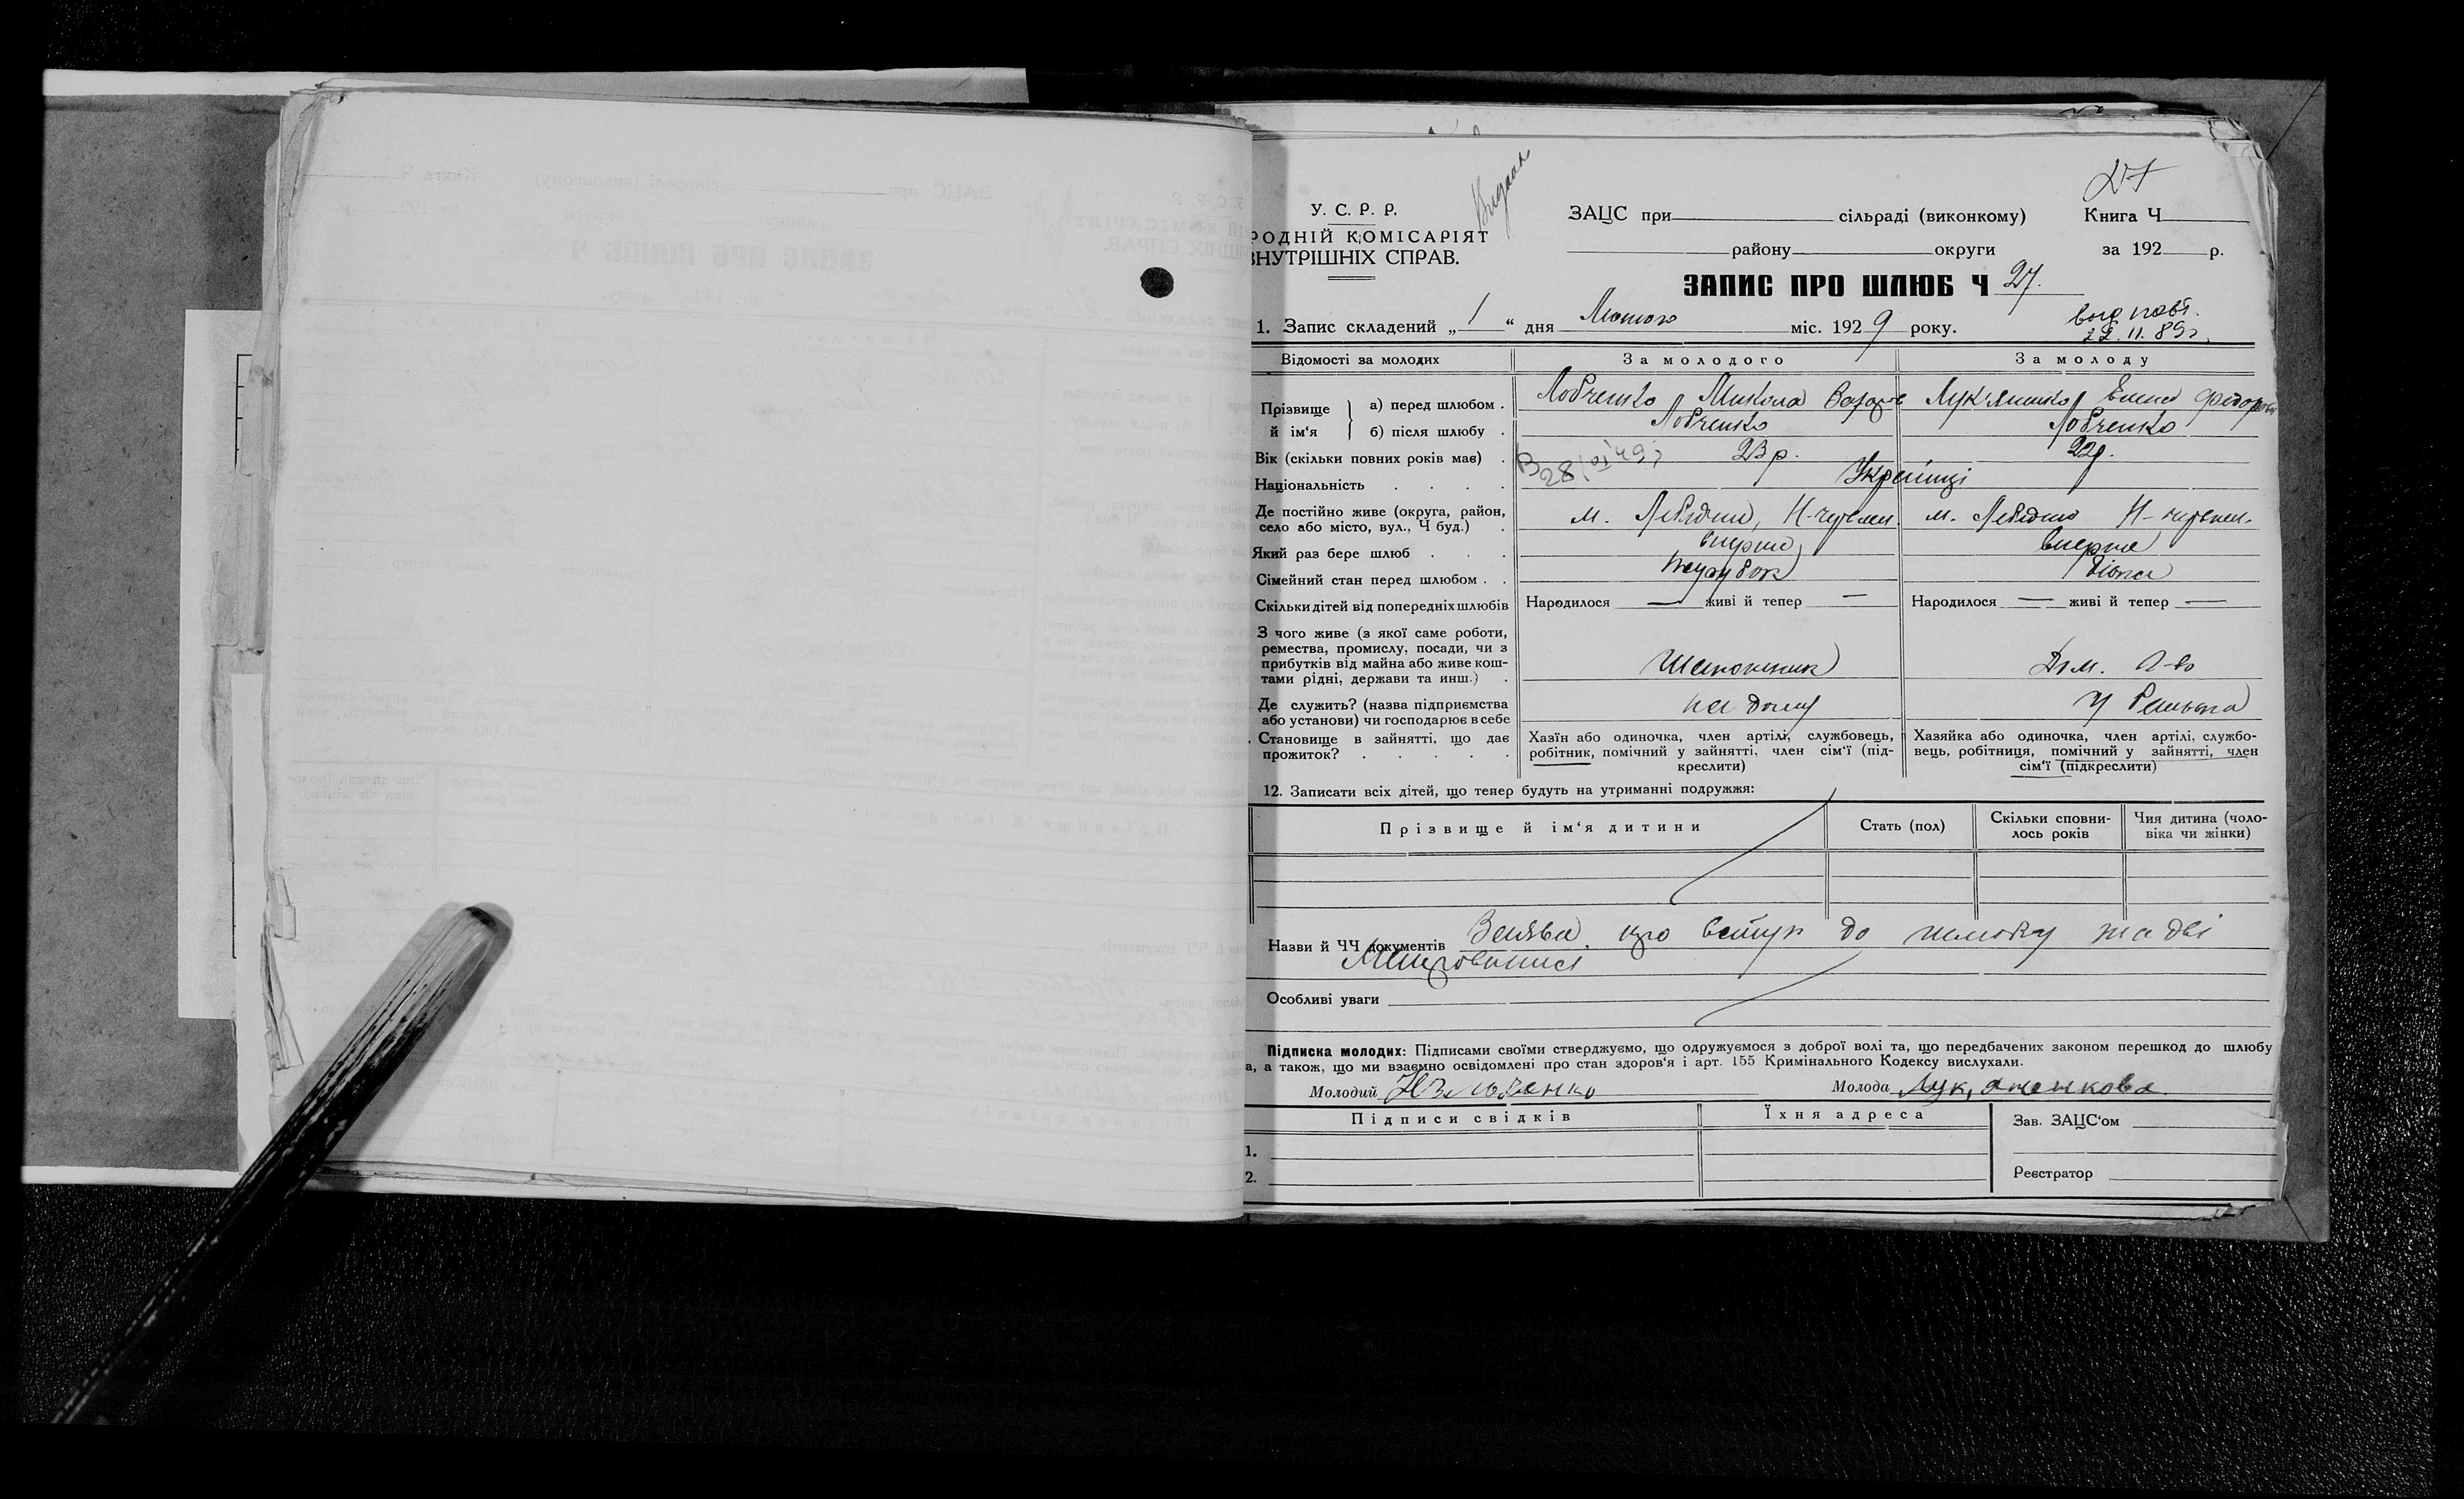 27
У. С. Р. Р.
РОДНІЙ КОМІСАРІЯТ
ВНУТРІШНІХ СПРАВ.
ЗАЦС при сільраді (виконкому) Книга Ч
району округи за 192 р.
ЗАПИС ПРО ШЛЮБ Ч 27.
1. Запис складений „1“ дня Лютого міс. 1929 року.
22.11.89г.
Відомості за молодих За молодого За молоду
Прізвище й ім‘я
а) перед шлюбом . Лобченко Микола Лук'яненко Єлена Федоров
б) після шлюбу . Лобченко Лобченко
Вік (скільки повних років має) . 23 р. 22р.
Національність . . . . Українці
Де постійно живе (округа, район, село або місто, вул., Ч буд.) . м. Лебедин, Н-червон. м. Лебедин Н-червон.
Який раз бере шлюб . . . вперше вперше
Сімейний стан перед шлюбом . . парубок дівка
Скільки дітей від попередніх шлюбів Народилося — живі й тепер — Народилося — живі й тепер —
З чого живе (з якої саме роботи,
ремества, промислу, посади, чи з
прибутків від майна або живе кош-
тами рідні, держави та инш.) . Шапошник Дом. г-во
Де служить? (назва підприємства
або установи) чи господарює в себе на дому у батька
Становище в зайнятті, що дає
прожиток? . . . . .
Хазїн або одиночка, член артілі, службовець,
робітник, помічний у зайнятті, член сім‘ї (під-
креслити)
Хазяйка або одиночка, член артілі, службо-
вець, робітниця, помічний у зайнятті, член
сім‘ї (підкреслити)
12. Записати всіх дітей, що тепер будуть на утриманні подружжя:
Прізвище й ім‘я дитини Стать (пол) Скільки сповни-
лось років Чия дитина (чоло-
віка чи жінки)
Назви й ЧЧ документів Заява про вступ до шлюбу та дві
Особливі уваги
Підписка молодих: Підписами своїми стверджуємо, що одружуємося з доброї волі та, що передбачених законом перешкод до шлюбу
а, а також, що ми взаємно освідомлені про стан здоров‘я і арт. 155 Кримінального Кодексу вислухали.
Молодий Молода Лук,яненкова.
Підписи свідків Їхня адреса Зав. ЗАЦС‘ом
1.
2. Реєстратор